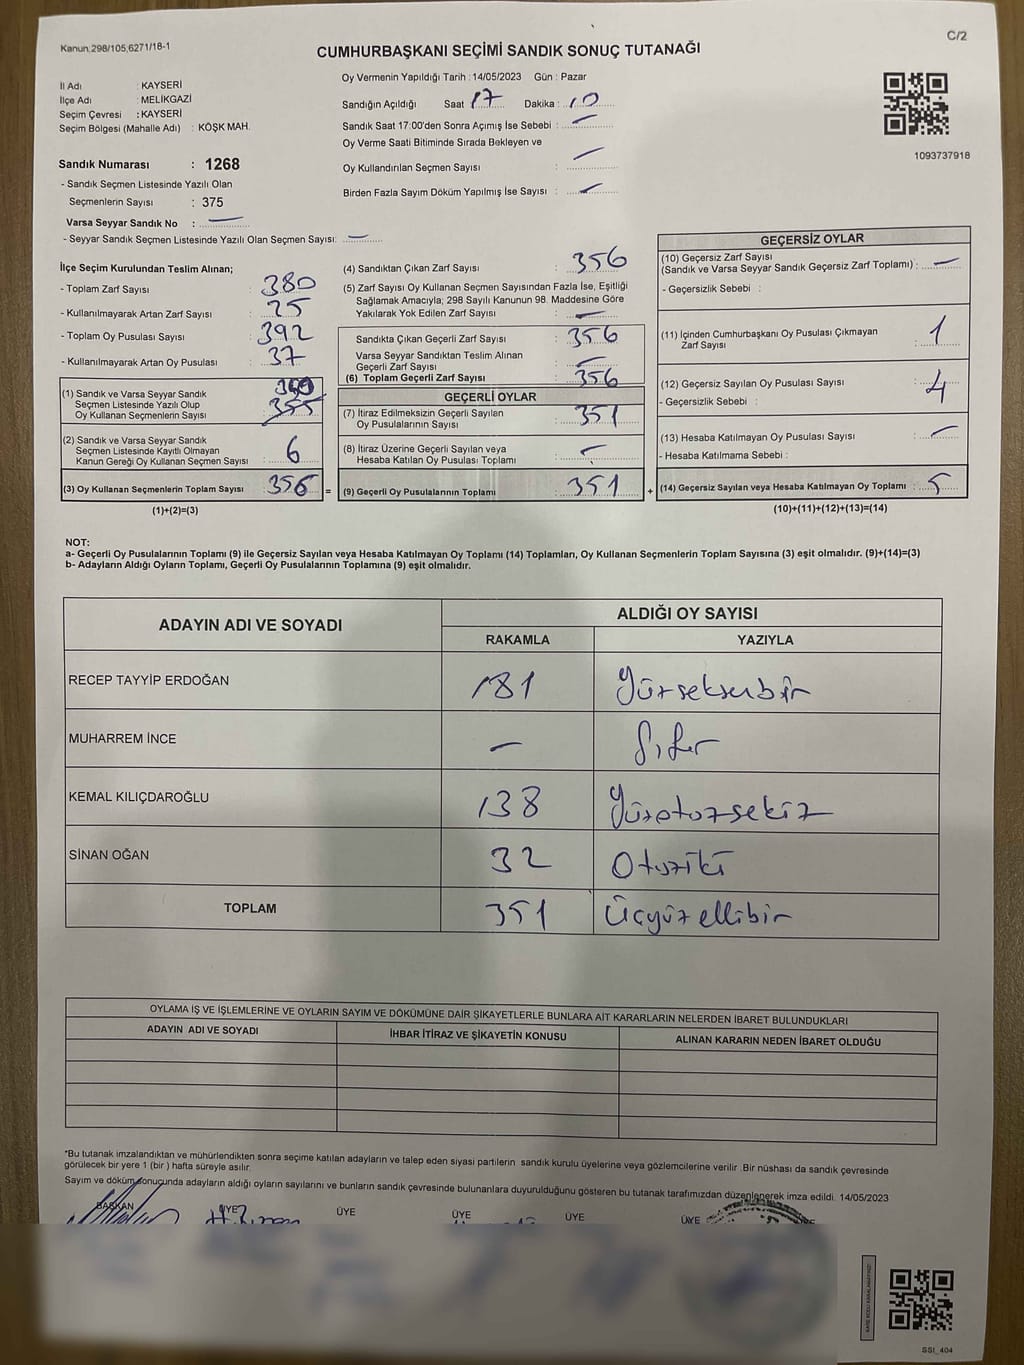 Kanun:298/105,6271/18-1
C/2
CUMHURBAŞKANI SEÇİMİ SANDIK SONUÇ TUTANAĞI
İl Adı : KAYSERİ
İlçe Adı : MELİKGAZİ
Seçim Çevresi : KAYSERİ
Seçim Bölgesi (Mahalle Adı) : KÖŞK MAH.
Sandık Numarası : 1268
- Sandık Seçmen Listesinde Yazılı Olan
Seçmenlerin Sayısı : 375
Varsa Seyyar Sandık No : —
- Seyyar Sandık Seçmen Listesinde Yazılı Olan Seçmen Sayısı: —
Oy Vermenin Yapıldığı Tarih : 14/05/2023 Gün : Pazar
Sandığın Açıldığı Saat 17 Dakika : 10
Sandık Saat 17:00'den Sonra Açımış İse Sebebi : —
Oy Verme Saati Bitiminde Sırada Bekleyen ve
Oy Kullandırılan Seçmen Sayısı : —
Birden Fazla Sayım Döküm Yapılmış İse Sayısı : —
1093737918
İlçe Seçim Kurulundan Teslim Alınan;
- Toplam Zarf Sayısı : 380
- Kullanılmayarak Artan Zarf Sayısı : 25
- Toplam Oy Pusulası Sayısı : 392
- Kullanılmayarak Artan Oy Pusulası : 37
(1) Sandık ve Varsa Seyyar Sandık
Seçmen Listesinde Yazılı Olup
Oy Kullanan Seçmenlerin Sayısı : 355
(2) Sandık ve Varsa Seyyar Sandık
Seçmen Listesinde Kayıtlı Olmayan
Kanun Gereği Oy Kullanan Seçmen Sayısı : 6
(3) Oy Kullanan Seçmenlerin Toplam Sayısı : 356 =
(1)+(2)=(3)
(4) Sandıktan Çıkan Zarf Sayısı : 356
(5) Zarf Sayısı Oy Kullanan Seçmen Sayısından Fazla İse, Eşitliği
Sağlamak Amacıyla; 298 Sayılı Kanunun 98. Maddesine Göre
Yakılarak Yok Edilen Zarf Sayısı : —
Sandıkta Çıkan Geçerli Zarf Sayısı : 356
Varsa Seyyar Sandıktan Teslim Alınan
Geçerli Zarf Sayısı : —
(6) Toplam Geçerli Zarf Sayısı : 356
GEÇERLİ OYLAR
(7) İtiraz Edilmeksizin Geçerli Sayılan
Oy Pusulalarının Sayısı : 351
(8) İtiraz Üzerine Geçerli Sayılan veya
Hesaba Katılan Oy Pusulası Toplamı : —
(9) Geçerli Oy Pusulalarının Toplamı : 351 +
GEÇERSİZ OYLAR
(10) Geçersiz Zarf Sayısı
(Sandık ve Varsa Seyyar Sandık Geçersiz Zarf Toplamı) : —
- Geçersizlik Sebebi :
(11) İçinden Cumhurbaşkanı Oy Pusulası Çıkmayan
Zarf Sayısı : 1
(12) Geçersiz Sayılan Oy Pusulası Sayısı : 4
- Geçersizlik Sebebi :
(13) Hesaba Katılmayan Oy Pusulası Sayısı : —
- Hesaba Katılmama Sebebi :
(14) Geçersiz Sayılan veya Hesaba Katılmayan Oy Toplamı : 5
(10)+(11)+(12)+(13)=(14)
NOT:
a- Geçerli Oy Pusulalarının Toplamı (9) ile Geçersiz Sayılan veya Hesaba Katılmayan Oy Toplamı (14) Toplamları, Oy Kullanan Seçmenlerin Toplam Sayısına (3) eşit olmalıdır. (9)+(14)=(3)
b- Adayların Aldığı Oyların Toplamı, Geçerli Oy Pusulalarının Toplamına (9) eşit olmalıdır.
ADAYIN ADI VE SOYADI ALDIĞI OY SAYISI
RAKAMLA YAZIYLA
RECEP TAYYİP ERDOĞAN 181 Yüzseksenbir
MUHARREM İNCE — Sıfır
KEMAL KILIÇDAROĞLU 138 Yüzotuzsekiz
SİNAN OĞAN 32 Otuziki
TOPLAM 351 Üçyüzellibir
OYLAMA İŞ VE İŞLEMLERİNE VE OYLARIN SAYIM VE DÖKÜMÜNE DAİR ŞİKAYETLERLE BUNLARA AİT KARARLARIN NELERDEN İBARET BULUNDUKLARI
ADAYIN ADI VE SOYADI İHBAR İTİRAZ VE ŞİKAYETİN KONUSU ALINAN KARARIN NEDEN İBARET OLDUĞU
*Bu tutanak imzalandıktan ve mühürlendikten sonra seçime katılan adayların ve talep eden siyasi partilerin sandık kurulu üyelerine veya gözlemcilerine verilir .Bir nüshası da sandık çevresinde
görülecek bir yere 1 (bir ) hafta süreyle asılır.
Sayım ve döküm sonucunda adayların aldığı oyların sayılarını ve bunların sandık çevresinde bulunanlara duyurulduğunu gösteren bu tutanak tarafımızdan düzenlenerek imza edildi. 14/05/2023
BAŞKAN ÜYE ÜYE ÜYE ÜYE ÜYE
SSI_404